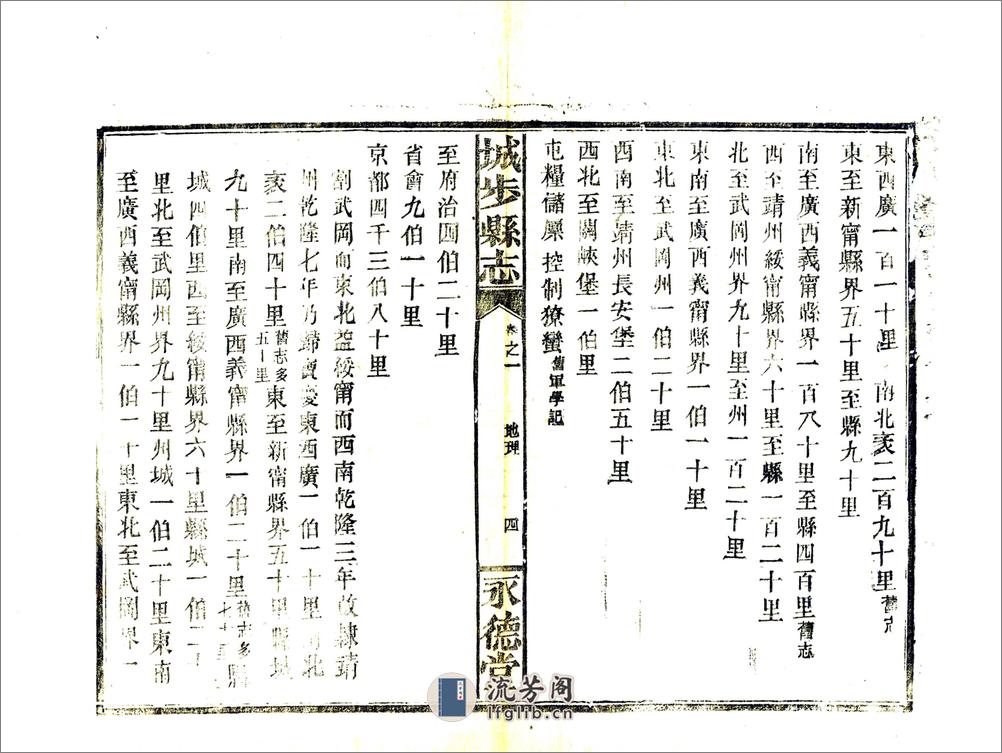 東西廣一百一十里南北袤二百九十里舊志
東至新甯縣界五十里至縣九十里
南至廣西義甯縣一百八十里至縣四百里舊志
西至靖州綏甯縣界六十里至縣一百二十里
北至武岡州界九十里至州一百二十里
東南至廣西義甯縣界一伯一十里
東北至武岡州一伯二十里
西南至靖州長安堡二伯五十里
西北至關峽堡一伯里
屯糧儲廩控制獠蠻舊軍學記
城步縣志
卷之一
地理
四
永德堂
至府治四伯二十里
省會九伯一十里
京都四千三伯八十里
割武岡而東北益綏甯而西南乾隆三年改隸靖
州乾隆七年乃歸寶慶東西廣一伯一十里南北
袤二伯四十里舊志多五十里東至新甯縣界五十里縣城
九十里南至廣西義甯縣界一伯二十里舊志多七十里縣
城四伯里西至綏甯縣界六十里縣城一伯二十
里北至武岡州界九十里州城一伯二十里東南
至廣西義甯縣界一伯一十里東北至武岡界一
流芳阁
lfglib.cn